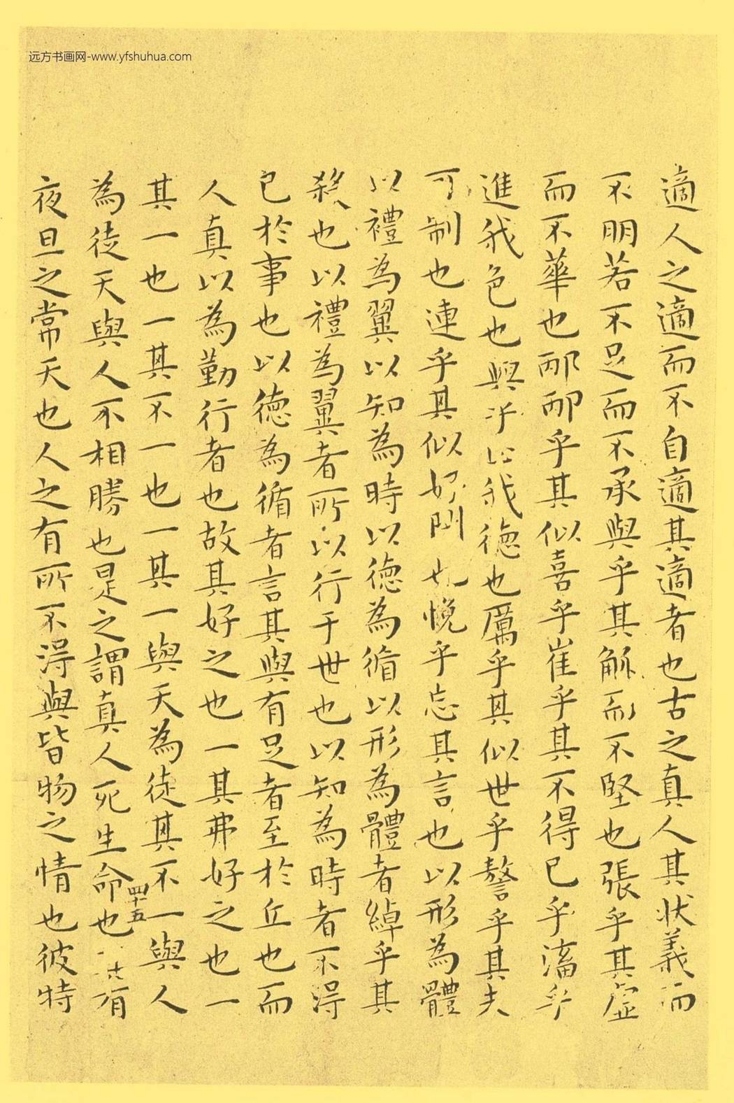 远方书画网-www.yfshuhua.com
適人之適而不自適其適者也古之真人其状義而
不朋若不足而不承與乎其觚而不堅也張乎其虛
而不華也邴邴乎其似喜乎崔乎其不得已乎滀乎
進我色也與乎止我德也厲乎其似世乎謷乎其夫
可制也連乎其似好閉也悗乎忘其言也以形為體
以禮為翼以知為時以德為循以形為體者綽乎其
殺也以禮為翼者所以行于世也以知為時者不得
已於事也以德為循者言其與有足者至於丘也而
人真以為勤行者也故其好之也一其弗好之也一
其一也一其不一也一其一與天為徒其不一與人
四十五
為徒天與人不相勝也是之謂真人死生命也其有
夜旦之常天也人之有所不得與皆物之情也彼特